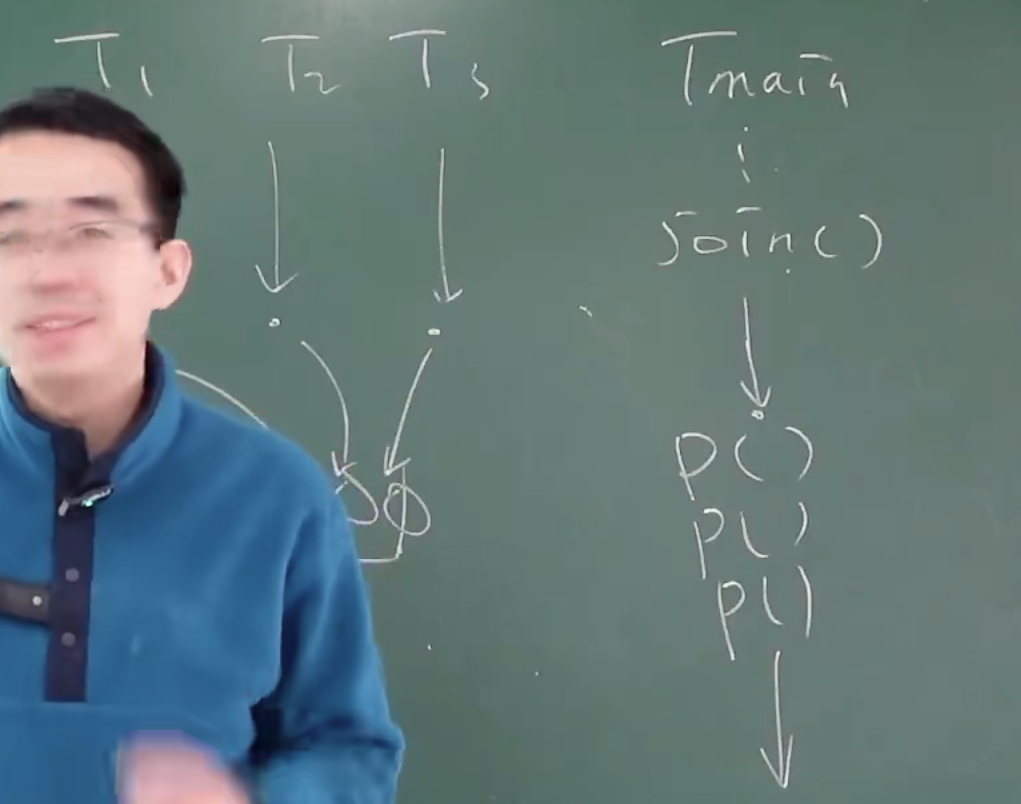 T1 T2 T3 Tmain
join()
P()
P()
P()